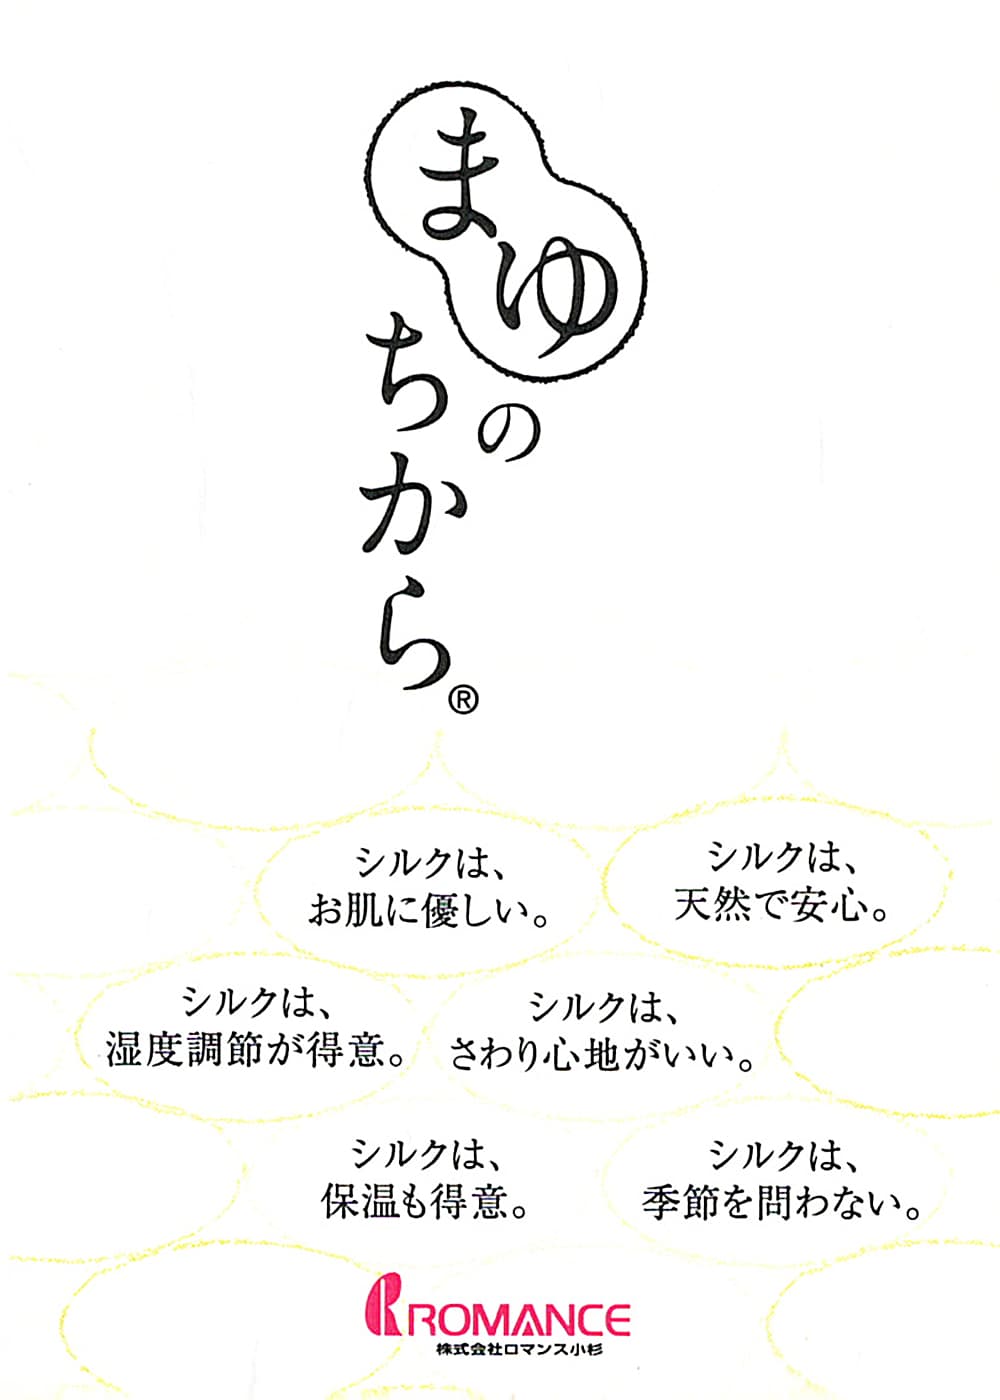 まゆ
の
ちから®
シルクは、
お肌に優しい。
シルクは、
天然で安心。
シルクは、
湿度調節が得意。
シルクは、
さわり心地がいい。
シルクは、
保温も得意。
シルクは、
季節を問わない。
ROMANCE
株式会社ロマンス小杉